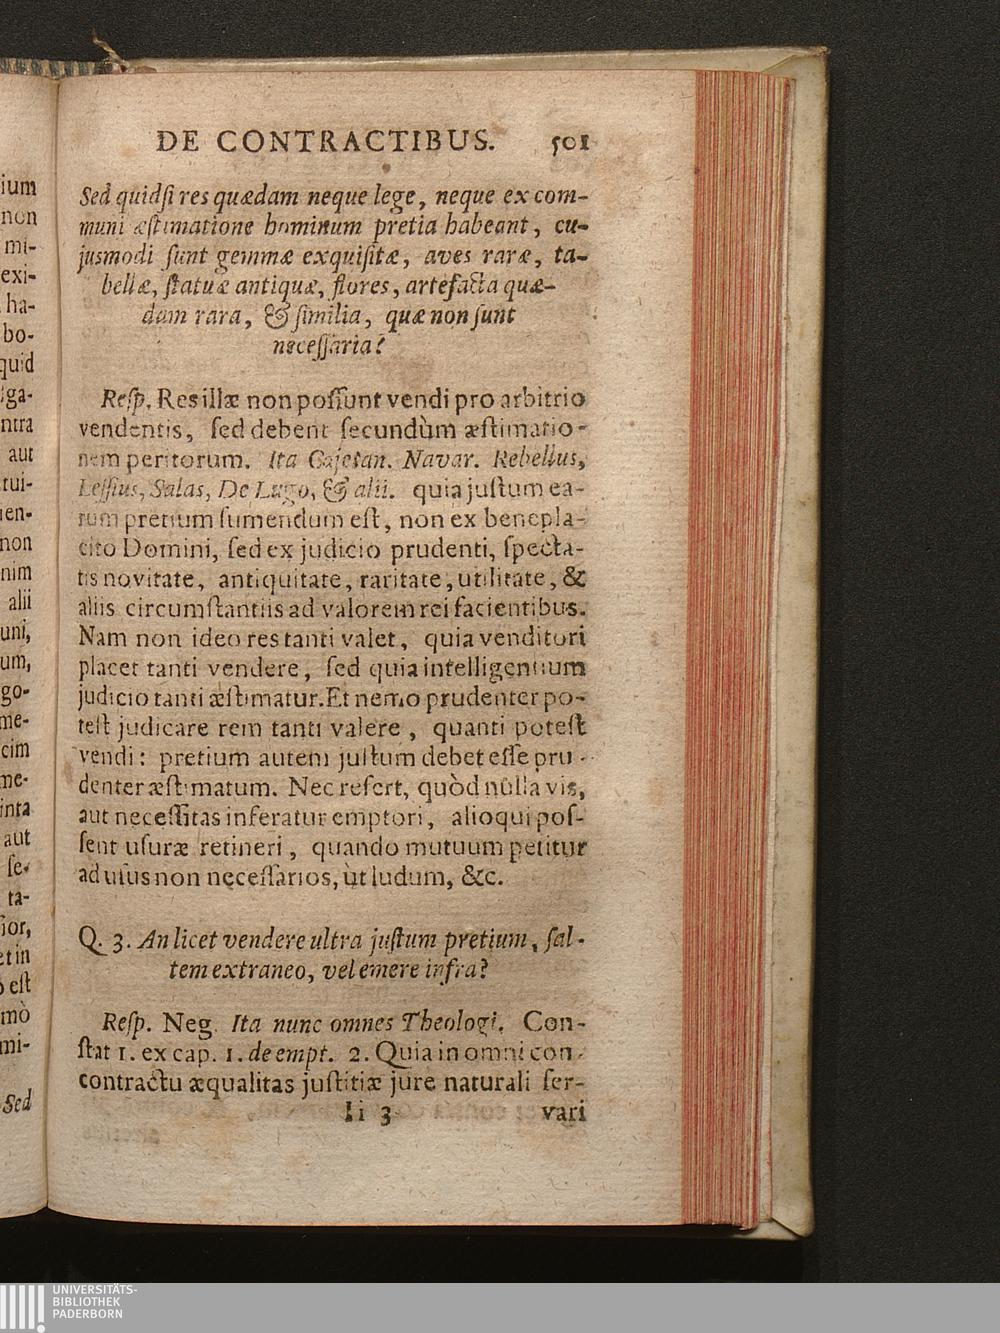 DE CONTRACTIBUS. 501
Sed quid si res quædam neque lege, neque ex com-
muni æstimatione hominum pretia habeant, cu-
jusmodi sunt gemmæ exquisitæ, aves raræ, ta-
bellæ, statuæ antiquæ, flores, artefacta quæ-
dam rara, & similia, quæ non sunt
necessaria?
Resp. Res illæ non possunt vendi pro arbitrio
vendentis, sed debent secundùm æstimatio-
nem peritorum. Ita Cajetan. Navar. Rebellus,
Lessius, Salas, De Lugo, & alii. quia justum ea-
rum pretium sumendum est, non ex benepla-
cito Domini, sed ex judicio prudenti, specta-
tis novitate, antiquitate, raritate, utilitate, &
aliis circumstantiis ad valorem rei facientibus.
Nam non ideo res tanti valet, quia venditori
placet tanti vendere, sed quia intelligentium
judicio tanti æstimatur. Et nemo prudenter po-
test judicare rem tanti valere, quanti potest
vendi: pretium autem justum debet esse pru-
denter æstimatum. Nec refert, quòd nulla vis,
aut necessitas inferatur emptori, alioqui pos-
sent usuræ retineri, quando mutuum petitur
ad usus non necessarios, ùt ludum, &c.
Q. 3. An licet vendere ultra justum pretium, sal-
tem extraneo, vel emere infra?
Resp. Neg. Ita nunc omnes Theologi. Con-
stat 1. ex cap. 1. de empt. 2. Quia in omni con-
contractu æqualitas justitiæ jure naturali ser-
Ii 3 vari
ium
non
mi-
exi-
ha-
bo-
quid
lga-
ntra
aut
tui-
ien-
non
nim
alii
uni,
um,
go-
me-
cim
me-
inta
aut
se-
ta-
ior,
et in
o est
mò
mi-
Sed
UNIVERSITÄTS-
BIBLIOTHEK
PADERBORN